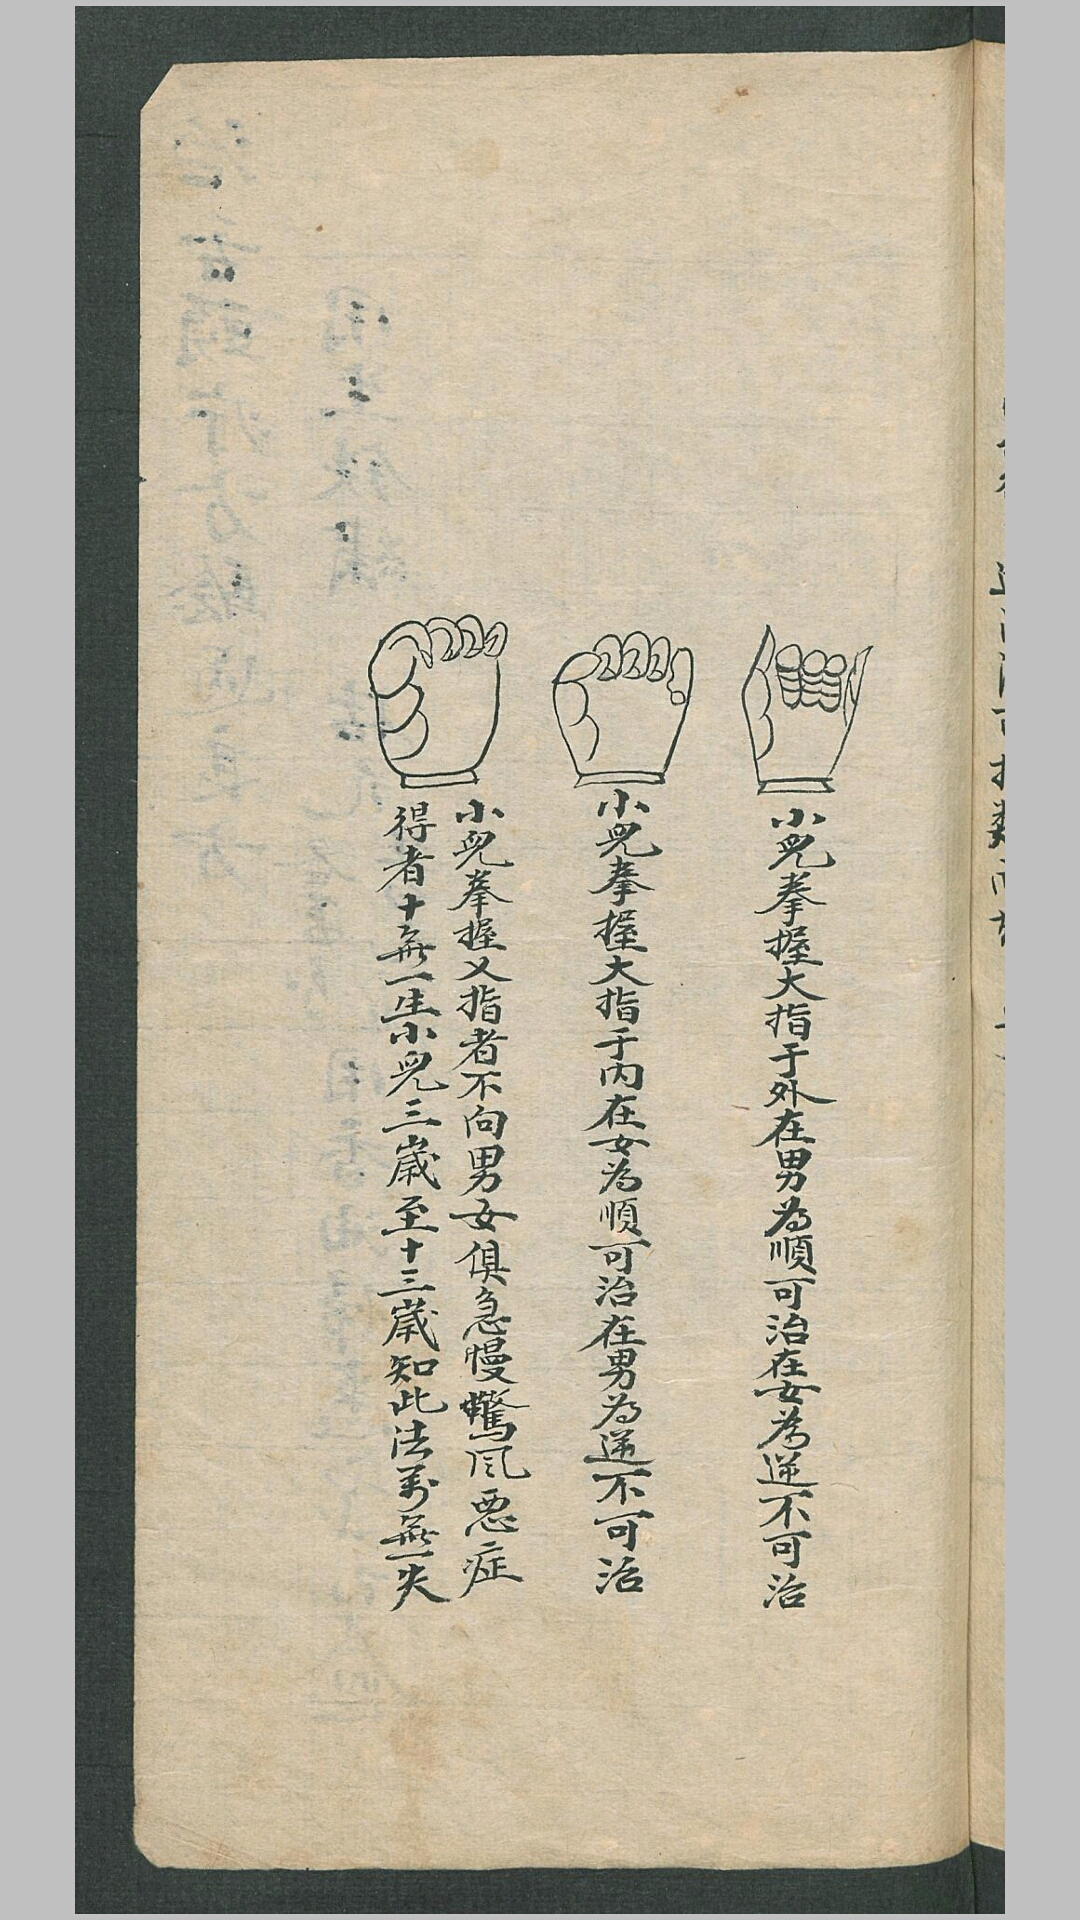 小兒拳握大指于外在男為順可治在女為逆不可治
小兒拳握大指于内在女為順可治在男為逆不可治
小兒拳握乂指者不向男女俱急慢驚风惡症
得者十無一生小兒三歲至十三歲知此法萬無一失